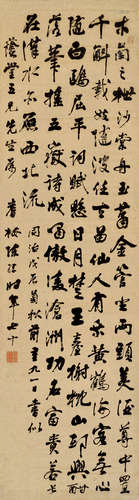 木蘭之枻沙棠舟玉簫金管坐兩頭美酒尊中置
千斛載妓隨波任去留仙人有待乘黃鶴海客無心
隨白鷗屈平詞賦懸日月楚王臺榭空山邱興酣
落筆搖五嶽詩成傲凌滄洲功名富貴若長
在漢水亦應西北流 同治戊辰菊秋前重九一日書似
堂五兄先生屬 梅陳時年七十